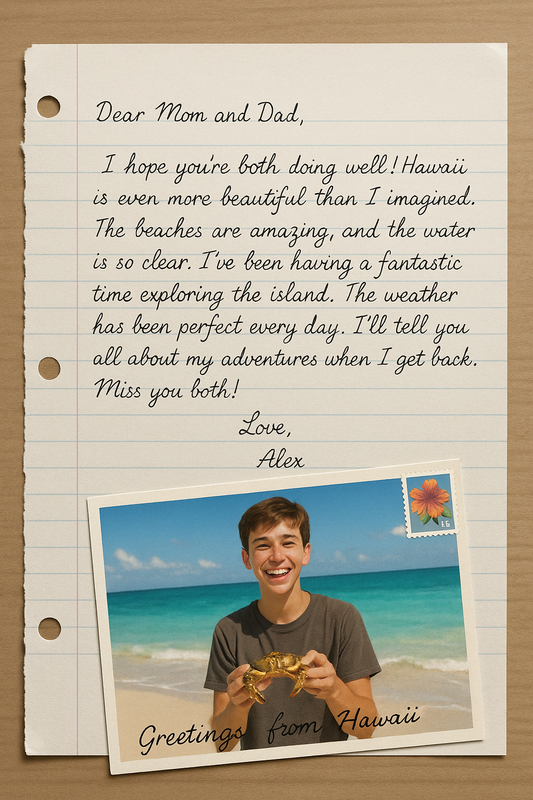 Dear Mom and Dad,
I hope you're both doing well! Hawaii
is even more beautiful than I imagined.
The beaches are amazing, and the water
is so clear. I've been having a fantastic
time exploring the island. The weather
has been perfect every day. I'll tell you
all about my adventures when I get back.
Miss you both!
Love,
Alex
Greetings from Hawaii